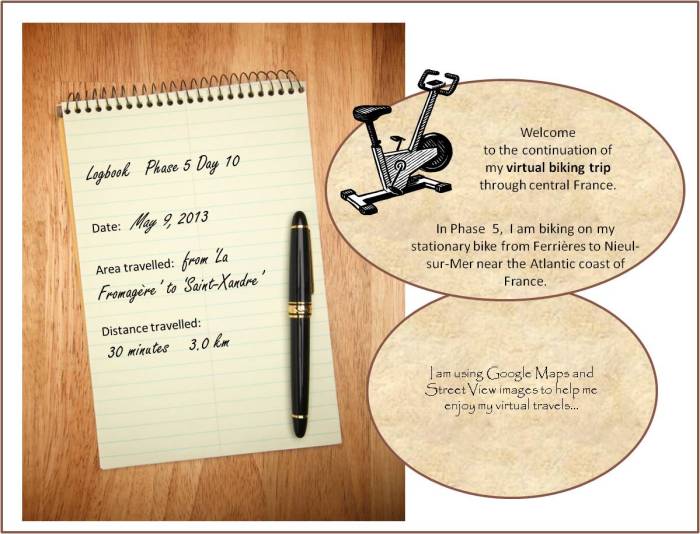 Logbook Phase 5 Day 10
Date: May 9, 2013
Area travelled: from 'La
Fromagère' to 'Saint-Xandre'
Distance travelled:
30 minutes 3.0 km
Welcome
to the continuation of
my virtual biking trip
through central France.
In Phase 5, I am biking on my
stationary bike from Ferrières to Nieul-
sur-Mer near the Atlantic coast of
France.
I am using Google Maps and
Street View images to help me
enjoy my virtual travels...